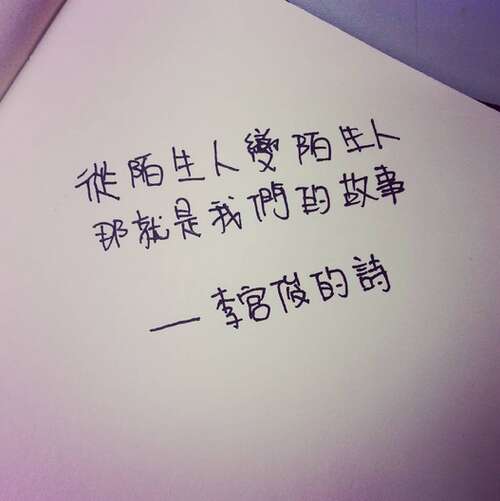 從陌生人變陌生人
那就是我們的故事
—李宮俊的詩